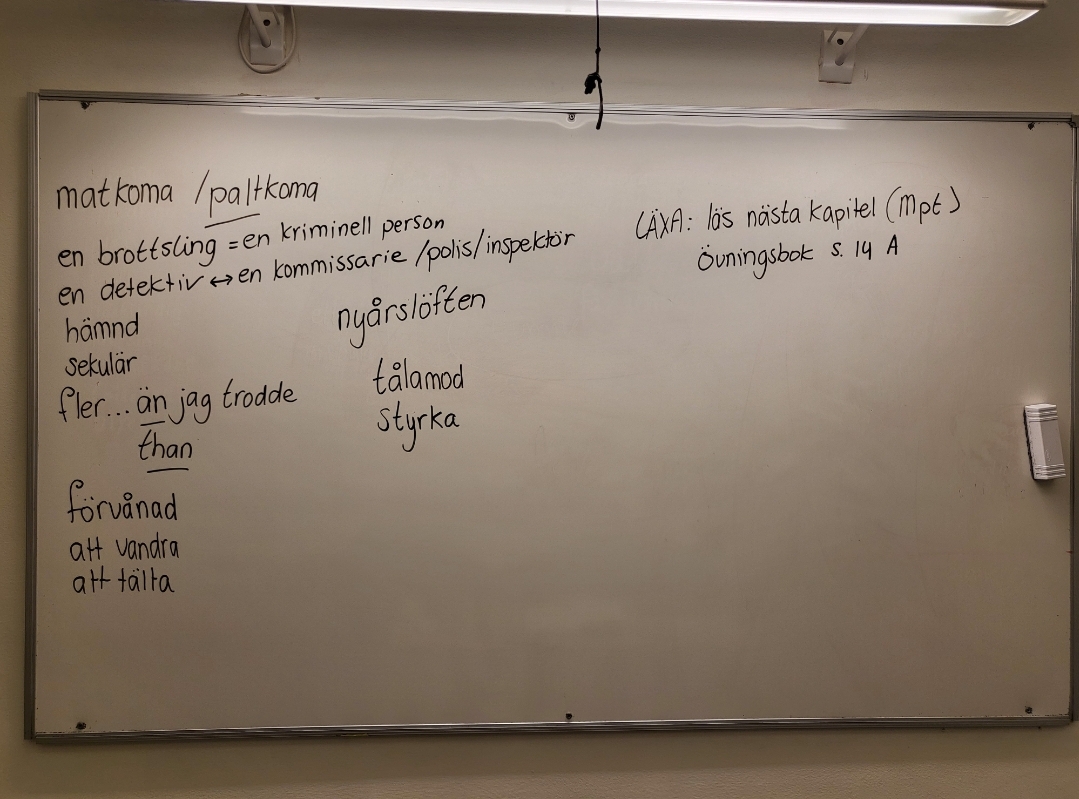 matkoma /paltkoma
en brottsling = en kriminell person
en detektiv ↔ en kommissarie /polis/inspektör
hämnd
sekulär
fler... än jag trodde
than
förvånad
att vandra
att tälta
nyårslöften
tålamod
styrka
LÄXA: läs nästa kapitel (Mpt)
Övningsbok s. 14 A